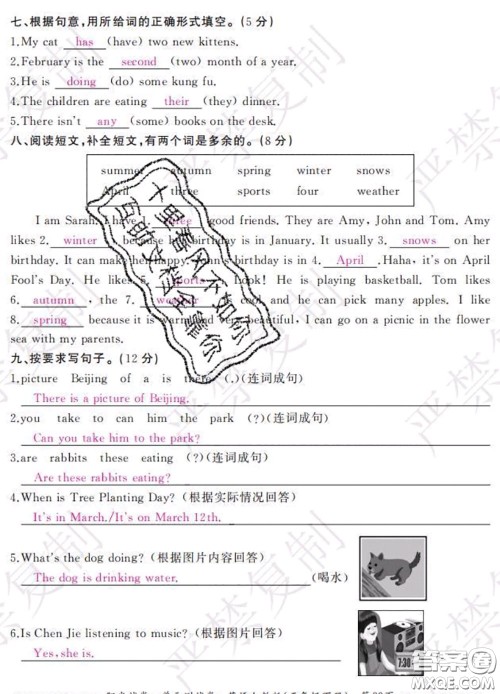 七、根据句意,用所给词的正确形式填空。(5分)
1.My cat has (have) two new kittens.
2.February is the second (two) month of a year.
3.He is doing (do) some kung fu.
4.The children are eating their (they) dinner.
5.There isn't any (some) books on the desk.
八、阅读短文,补全短文,有两个词是多余的。(8分)
summer autumn spring winter snows
April three sports four weather
I am Sarah. I have 1. three good friends. They are Amy, John and Tom. Amy
likes 2. winter , because her birthday is in January. It usually 3. snows on her
birthday. It can make her happy. John's birthday is in 4. April .Haha, it's on April
Fool's Day. He likes 5. sports . Look! He is playing basketball. Tom likes
6. autumn , the 7. weather is cool and he can pick many apples. I like
8. spring because it is warm and very beautiful, I can go on a picnic in the flower
sea with my parents.
九、按要求写句子。(12分)
1.picture Beijing of a is there (.)(连词成句)
There is a picture of Beijing.
2.you take to can him the park (?)(连词成句)
Can you take him to the park?
3.are rabbits these eating (?)(连词成句)
Are these rabbits eating?
4.When is Tree Planting Day?(根据实际情况回答)
It's in March./It's on March 12th.
5.What's the dog doing?(根据图片内容回答)
The dog is drinking water. (喝水)
6.Is Chen Jie listening to music?(根据图片回答)
Yes, she is.
7:30
严禁复制
十里春风不如你
百助文档不能你
答案圈